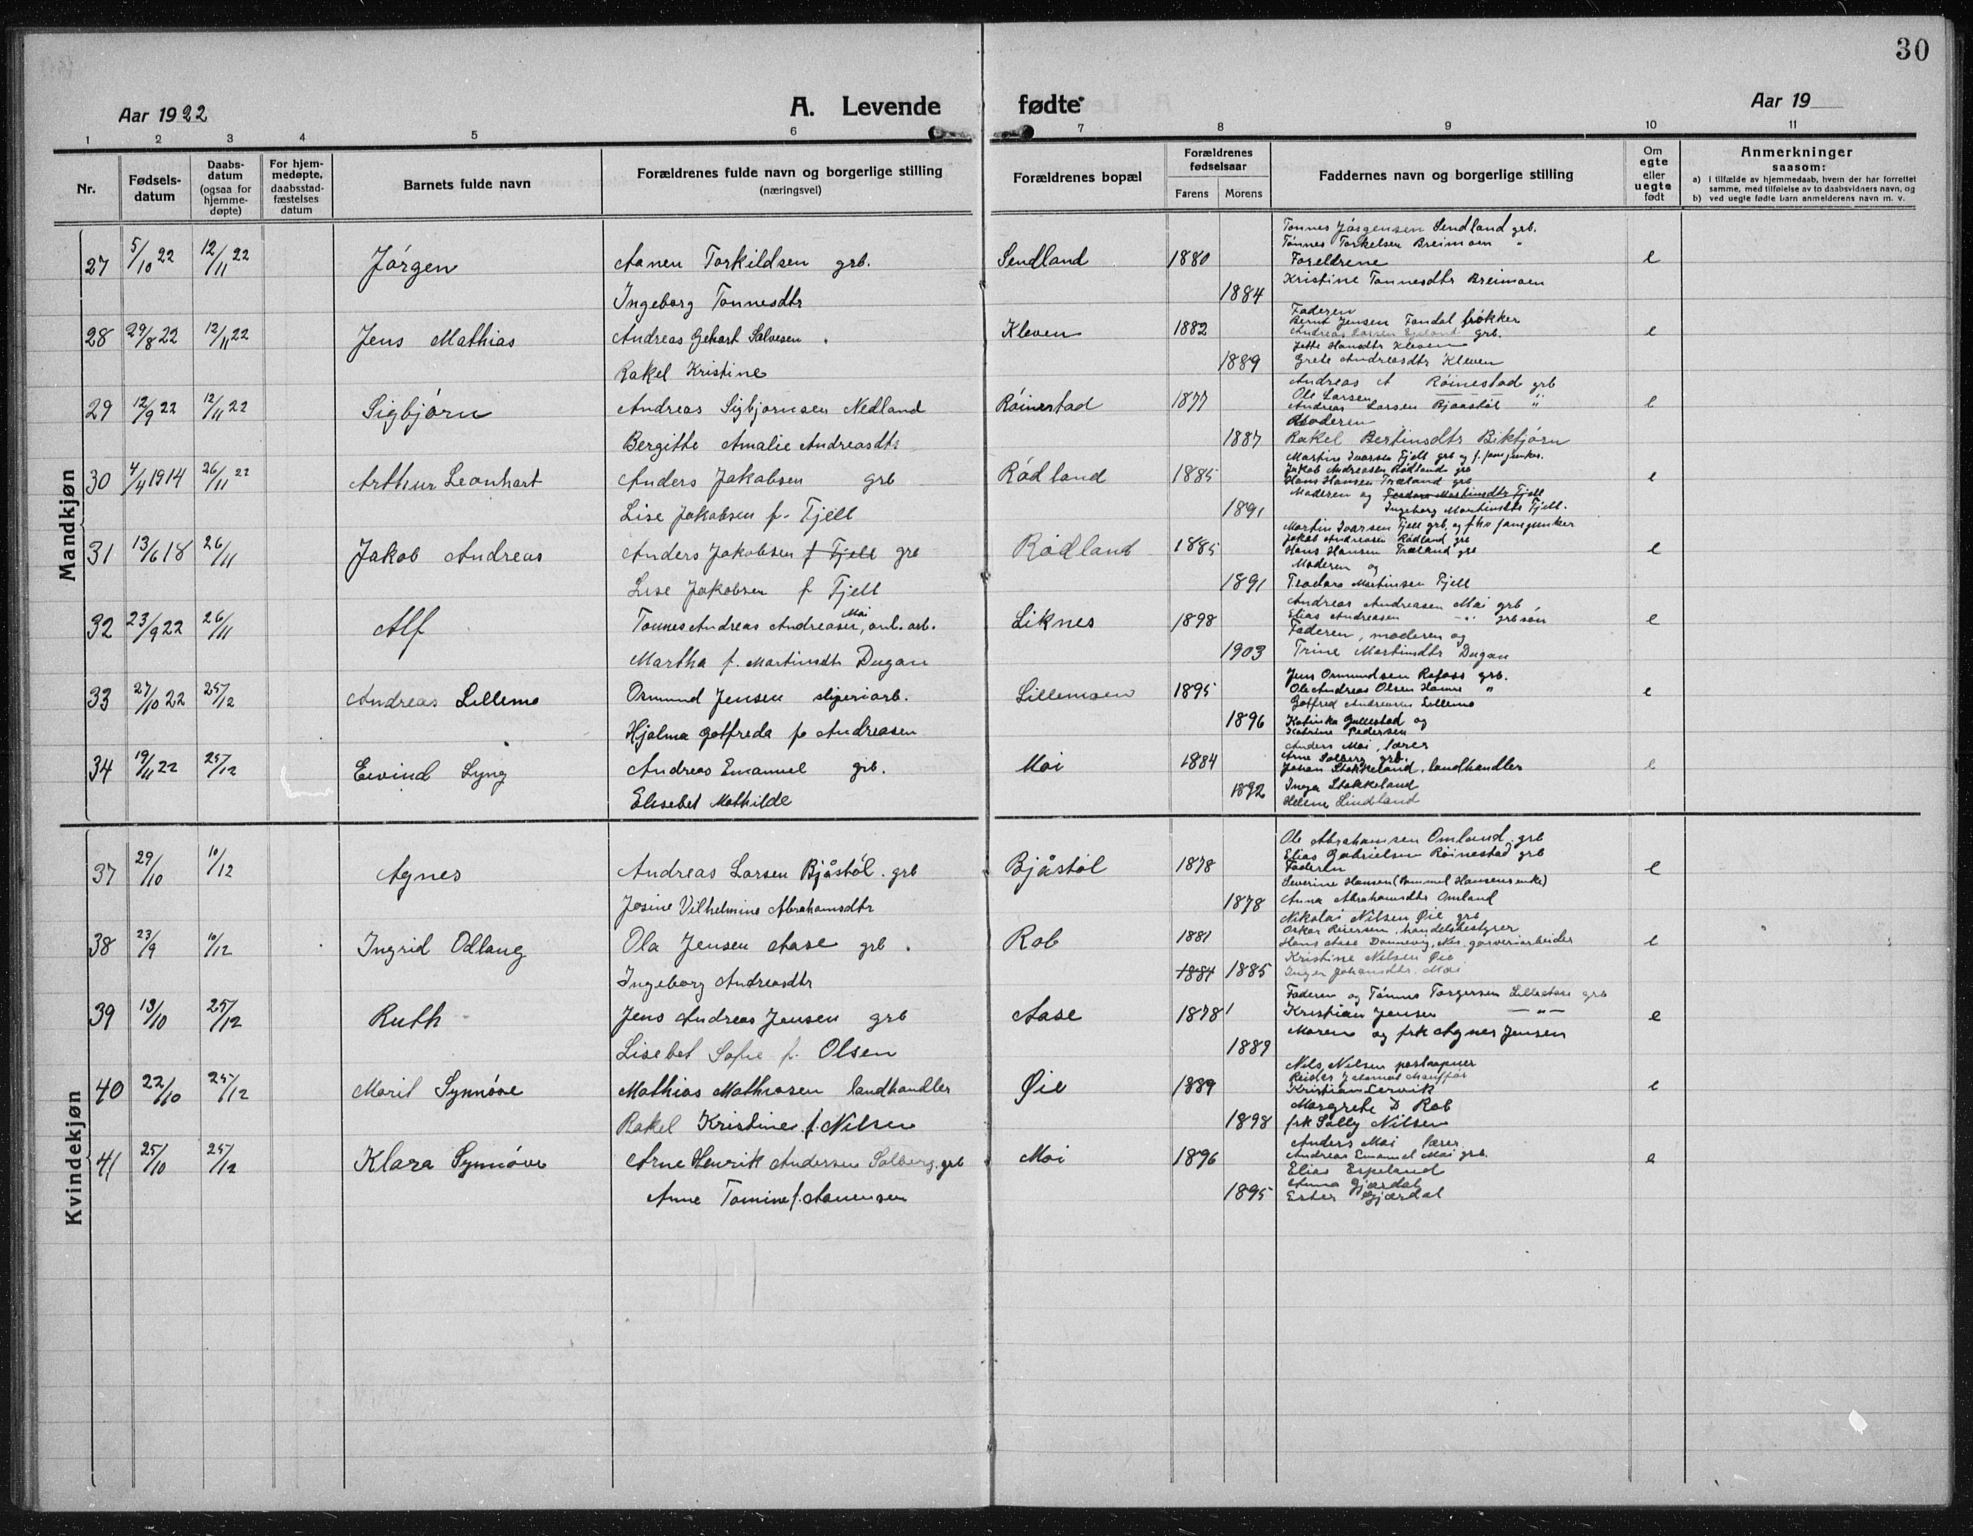 30
Aar 1922
A. Levende fødte
Aar 19
1 2 3 4 5 6 7 8 9 10 11
Nr.
Fødsels-
datum
Daabs-
datum
(ogsaa for
hjemme-
døpte)
For hjem-
medøpte,
daabsstad-
fæstelses
datum
Barnets fulde navn
Forældrenes fulde navn og borgerlige stilling
(næringsvei)
Forældrenes bopæl
Forældrenes
fødselsaar
Farens Morens
Faddernes navn og borgerlige stilling
Om
egte
eller
uegte
født
Anmerkninger
saasom:
a) i tilfælde av hjemmedaab, hvem der har forrettet
samme, med tilføielse av to daabsvidners navn, og
b) ved uegte fødte barn anmelderens navn m. v.
Mandkjøn
27 5/10 22 12/11 22 Jørgen Aanen Torkildsen grb. Sendland 1880 e
Ingeborg Tønnesdtr 1884
Tønnes Jørgensen Sendland grb.
Tønnes Torkelsen Breimoen "
Foreldrene
Kristine Tønnesdtr Breimoen
28 29/8 22 12/11 22 Jens Mathias Andreas Gehart Salvesen " Kleven 1882 e
Rakel Kristine 1889
Faderen
Bernt Jensen Fandal
Andreas Larsen grb.
Jette Hansdtr Kleven
Grete Andreasdtr Kleven
29 12/9 22 12/11 22 Sigbjørn Andreas Sigbjørnsen Nedland Røinestad 1877 e
Bergitte Amalie Andreasdtr 1887
Andreas A Røinestad grb
Ole Larsen
Andreas Larsen Bjaastøl "
Moderen
Rakel Bertinsdtr Biktjørn
30 4/4 1914 26/11 22 Arthur Leonhart Anders Jakobsen grb Rødland 1885 e
Lise Jakobsen f. Fjell 1891
Martin Ivarsen Fjell grb og f.
Jakob Andreasen Rødland grb
Hans Hansen Træland grb
Moderen og Teodora Martinsdtr Fjell
Ingeborg Martinsdtr Fjell.
31 13/6 18 26/11 Jakob Andreas Anders Jakobsen f Fjell grb Rødland 1885 e
Lise Jakobsen f Fjell 1891
Martin Ivarsen Fjell grb. og
Jakob Andreasen Rødland grb
Hans Hansen Træland grb
Moderen og
Teodora Martinsen Fjell
32 23/9 22 26/11 Alf Tønnes Andreas Andreasen Moi, anl. arb. Liknes 1898 e
Martha f. Martinsdtr Dugan 1903
Andreas Andreasen Moi grb
Elias Andreasen -"- grbsøn
Faderen, moderen og
Trine Martinsdtr Dugan
33 27/10 22 25/12 Andreas Lillemo Ormund Jensen sliperiarb. Lillemoen 1895 e
Hjalma Gotfreda f. Andreasen 1896
Jens Ormundsen Rafoss grb.
Ole Andreas Olsen Hamre "
Gotfred Andreasen Lillemo
Katinka Gullestad og
Katrine Pedersen
34 19/11 22 25/12 Eivind Lyng Andreas Emanuel grb. Moi 1884 e
Elisebet Mathilde 1892
Anders Moi, lærer
Arne Solberg grb.
Johan Stokkeland, landhandler
Inga Stokkeland
Helene Lindland
Kvindekjøn
37 29/10 10/12 Agnes Andreas Larsen Bjåstøl. grb Bjåstøl 1878 e
Josine Vilhelmine Abrahamsdtr 1878
Ole Abrahamsen Omland. grb
Elias Gabrielsen Røinestad grb
Faderen
Severine Hansen (Bommel Hansens enke)
Anna Abrahamsdtr Omland
38 23/9 10/12 Ingrid Odlaug Ola Jensen Aase grb. Rob 1881 e
Ingeborg Andreasdtr 1884 1885
Nikolai Nilsen Øie grb
Oskar Reiersen, handelsbestyrer
Hans Aase Donnevig, Nes. garveriarbeider
Kristine Nilsen Øie
Inger Johansdtr. Moi
39 13/10 25/12 Ruth Jens Andreas Jensen grb Aase 1878 e
Lisebet Sofie f. Olsen 1889
Faderen og Tønnes Torgersen Lilleaase grb
Kristian Jensen -"-
Moren og frk Agnes Jensen
40 22/10 25/12 Marit Synnøve Mathias Mathiasen landhandler Øie 1889 e
Rakel Kristine f. Nilsen 1898
Nils Nilsen postaapner
Reidar
Kristian Lervik
Margrete D Rob
frk Sally Nilsen
41 25/10 25/12 Klara Synnøve Arne Henrik Andersen Solberg, grb Moi 1896 e
Anne Tomine f. Aanensen 1895
Anders Moi lærer
Andreas Emanuel Moi grb.
Elias Espeland
Anna Gjærdal
Ester Gjærdal